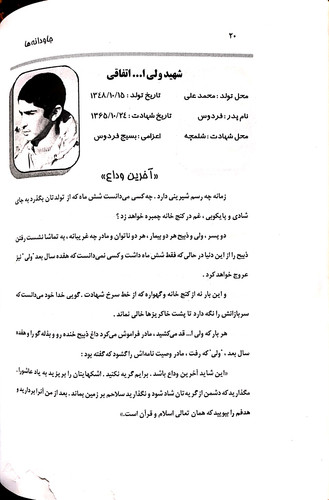 ۲۰
جاودانه‌ها
شهید ولی ا... اتفاقی
محل تولد : محمد علی
تاریخ تولد : ۱۳۴۸/۱۰/۱۵
نام پدر : فردوس
تاریخ شهادت : ۱۳۶۵/۱۰/۲۴
محل شهادت : شلمچه
اعزامی : بسیج فردوس
«آخرین وداع»
زمانه چه رسم شیرینی دارد . چه کسی می‌دانست شش ماه که از تولدتان بگذرد به جای
شادی و پایکوبی ، غم در کنج خانه چمبره خواهد زد ؟
دو پسر ، ولی و ذبیح هر دو بیمار ، هر دو ناتوان و مادر چه غریبانه ، به تماشا نشست رفتن
ذبیح را از این دنیا در حالی که فقط شش ماه داشت و کسی نمی‌دانست که هفده سال بعد "ولی" نیز
عروج خواهد کرد .
و این بار نه از کنج خانه و گهواره که از خط سرخ شهادت . گویی خدا خود می‌دانست که
سربازانش را نگه دارد تا پشت خاکریزها خالی نماند .
هر بار که ولی ا... قد می‌کشید ، مادر فراموش می‌کرد داغ ذبیح خنده رو و بذله گو را و هفده
سال بعد ، "ولی" که رفت ، مادر وصیت نامه‌اش را گشود که گفته بود :
«این شاید آخرین وداع باشد . برایم گریه نکنید . اشکهایتان را بریزید به یاد عاشورا .
مگذارید که دشمن از گریه‌تان شاد شود و نگذارید سلاحم بر زمین بماند ، بعد از من آنرا بردارید و
هدفم را بپویید که همان تعالی اسلام و قرآن است .»